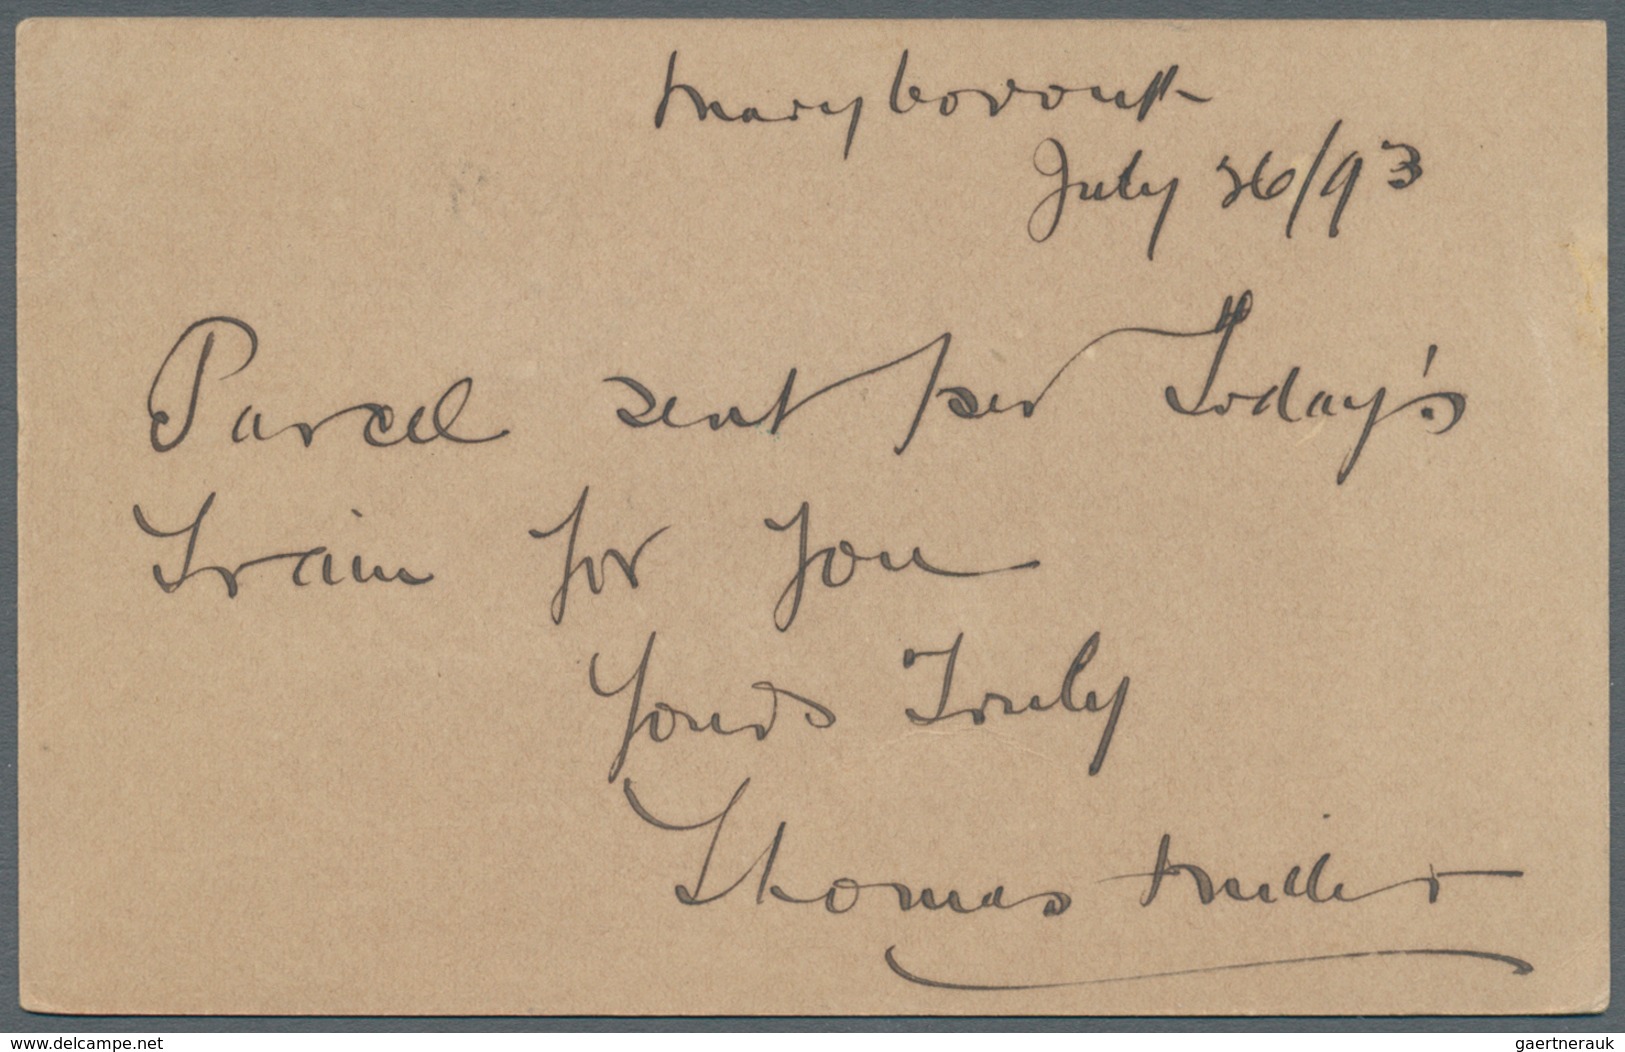 Maryborough
July 26/93
Parcel sent per Today's
Train for You
Yours Truly
Thomas Miller
www.delcampe.net
gaertnerauk